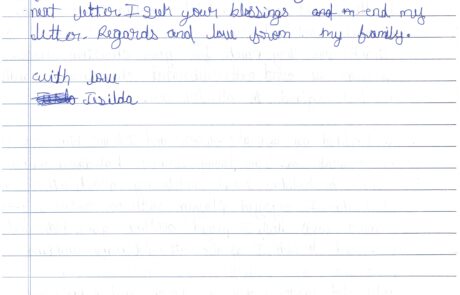 next letter. I seek your blessings and end my
letter. Regards and love from my family.
with love
Jisilda